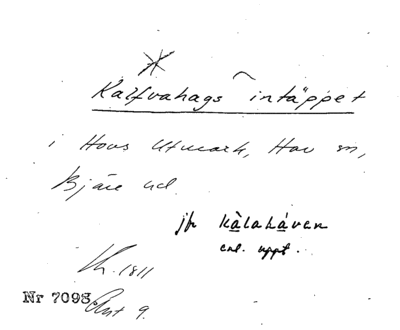 Kalfvahags intäppet
i Hovs Utmark, Hov sn,
Bjäre hd.
jfr kålahåven
enl. uppt.
Ch. 1811
Nr 7093 Akt 9.